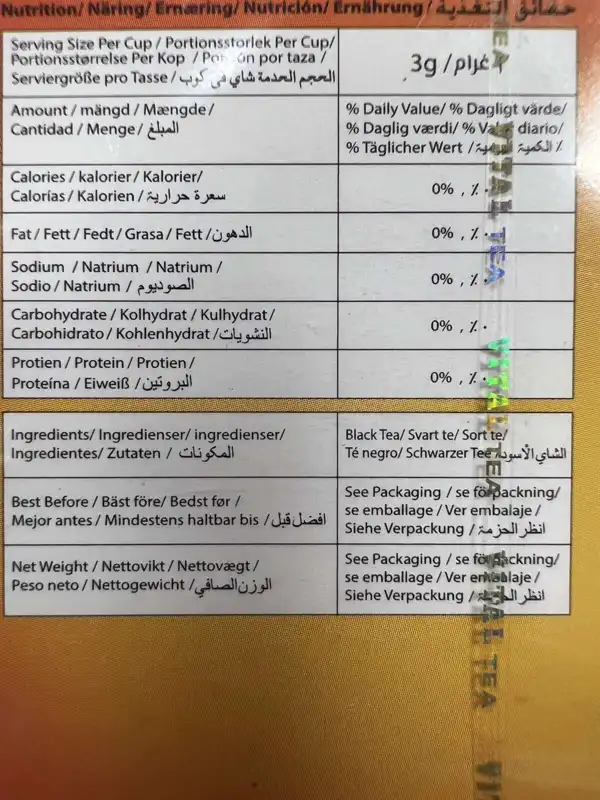 Nutrition/ Näring/ Ernæring/ Nutrición/ Ernährung / حقائق التغذية
Serving Size Per Cup / Portionsstorlek Per Cup/
Portionsstørrelse Per Kop / por taza /
Serviergröße pro Tasse / الحجم الخدمة شاي في كوب
3g / غرام ٣
Amount / mängd / Mængde/
Cantidad / Menge / المبلغ
% Daily Value/ % Dagligt värde/
% Daglig værdi/ % diario/
% Täglicher Wert / ٪ الكمية
Calories / kalorier / Kalorier/
Calorías / Kalorien / سعرة حرارية
0% , ٪٠
Fat / Fett / Fedt / Grasa / Fett / الدهون
0% , ٪٠
Sodium / Natrium / Natrium /
Sodio / Natrium / الصوديوم
0% , ٪٠
Carbohydrate / Kolhydrat / Kulhydrat /
Carbohidrato / Kohlenhydrat / النشويات
0% , ٪٠
Protien / Protein / Protien /
Proteína / Eiweiß / البروتين
0% , ٪٠
Ingredients/ Ingredienser/ ingredienser/
Ingredientes/ Zutaten / المكونات
Black Tea/ Svart te/ Sort te/
Té negro/ Schwarzer Tee / الشاي الأسود
Best Before / Bäst före/ Bedst før /
Mejor antes / Mindestens haltbar bis / افضل قبل
See Packaging / se förpackning/
se emballage / Ver embalaje /
Siehe Verpackung / انظر الحزمة
Net Weight / Nettovikt / Nettovægt /
Peso neto / Nettogewicht / الوزن الصافي
See Packaging / se förpackning/
se emballage / Ver embalaje /
Siehe Verpackung / انظر
TEA
VITAL TEA
VITAL TEA
VITAL TEA